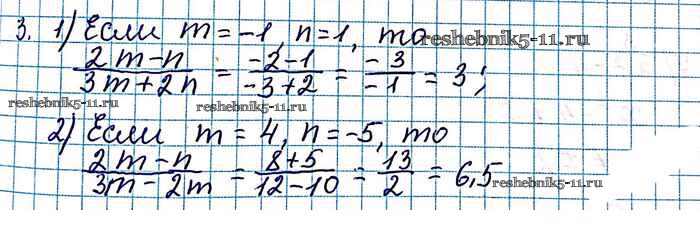 3. 1) Если m = -1, n = 1, то
reshebnik5-11.ru
(2m-n)/(3m+2n) = (-2-1)/(-3+2) = (-3)/(-1) = 3;
reshebnik5-11.ru reshebnik5-11.ru
2) Если m = 4, n = -5, то
(2m-n)/(3m-2m) = (8+5)/(12-10) = 13/2 = 6,5
reshebnik5-11.ru